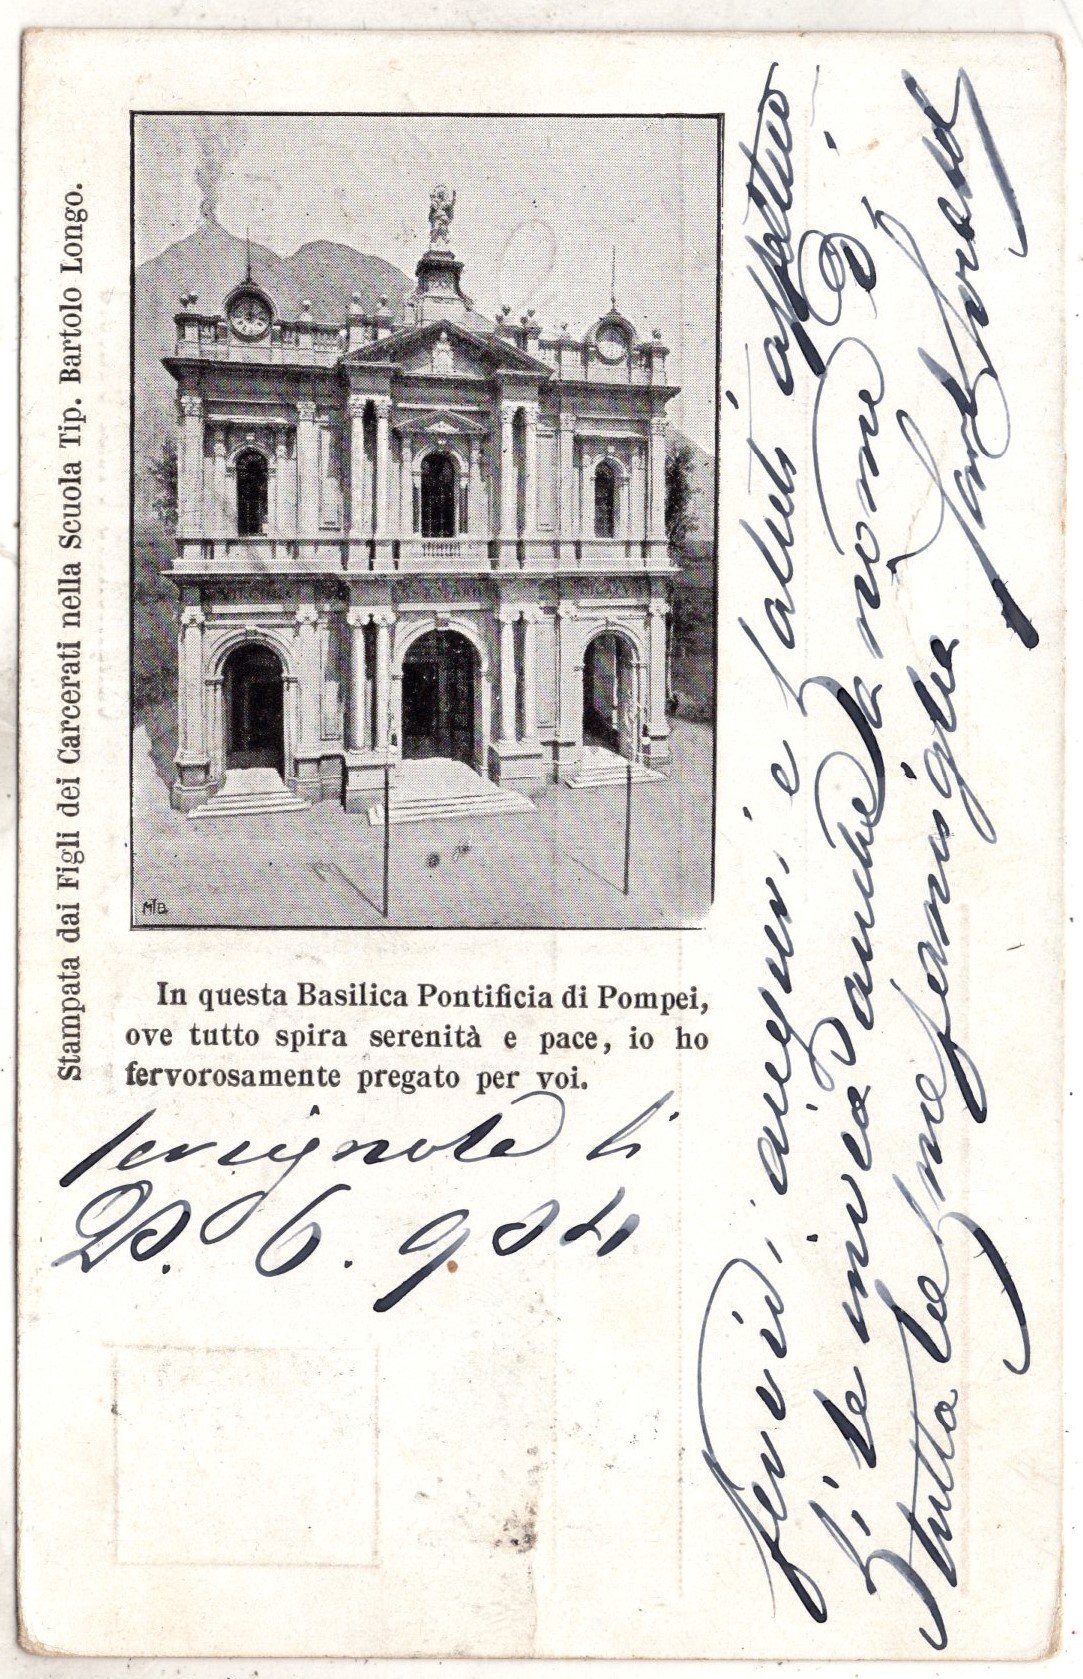 Stampata dai Figli dei Carcerati nella Scuola Tip. Bartolo Longo.
MTB
In questa Basilica Pontificia di Pompei,
ove tutto spira serenità e pace, io ho
fervorosamente pregato per voi.
li
20. 6. 904
Fervidi auguri e saluti
li invia anche a nome di
tutta la mia famiglia